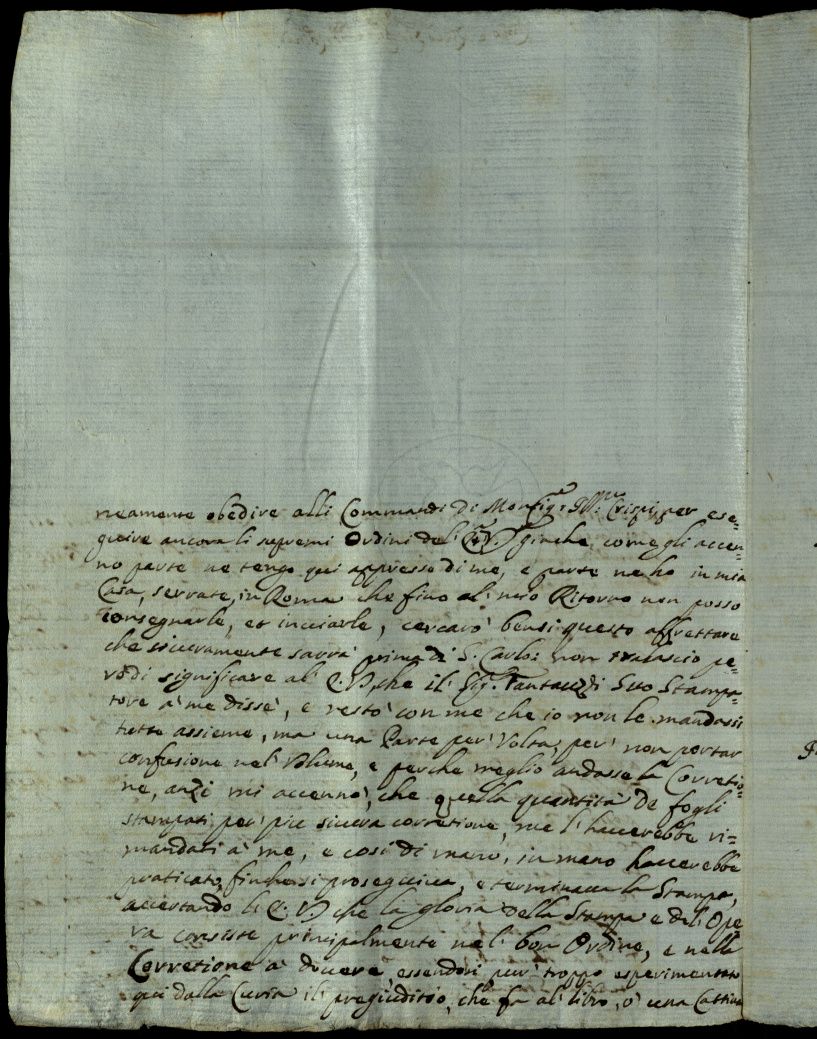 neamente obedire alli Commandi di Monsig.re Ill.mo Crispi, per ese=
guire ancora li supremi Ordini del' E.V. giache, come gli accen=
no parte ne tengo qui appresso di me, e parte ne ho in mia
Casa, serrate, in Roma che fino al' mio Ritorno non posso
consegnarle, et inviarle, cercarò bensi questo affrettare
che sicuramente sarrà prima di S. Carlo: non tralascio pe=
rò di significare al' E.V. che il Sig.r Fantauzzi Suo Stampa=
tore à me disse, e restò con me che io non le mandassi
tutte assieme, ma una Parte per' Volta, per' non portar
confusione nel' Volume, e perche meglio andasse la Corretio=
ne, anzi mi accennò, che quella quantità de fogli
stampati per' più sicura corretione, me l' haverebbe ri=
mandati à me, e così di mano, in mano haverebbe
praticato, finche si proseguiva, e terminava la Stampa,
accertando l' E.V. che la gloria della Stampa e del' Ope
ra consiste principalmente nel' bon Ordine, e nella
Corretione à dovere, essendosi pur' troppo esperimentato
qui dalla Curia il' pregiuditio, che fa al' libro, ò una Cattiva